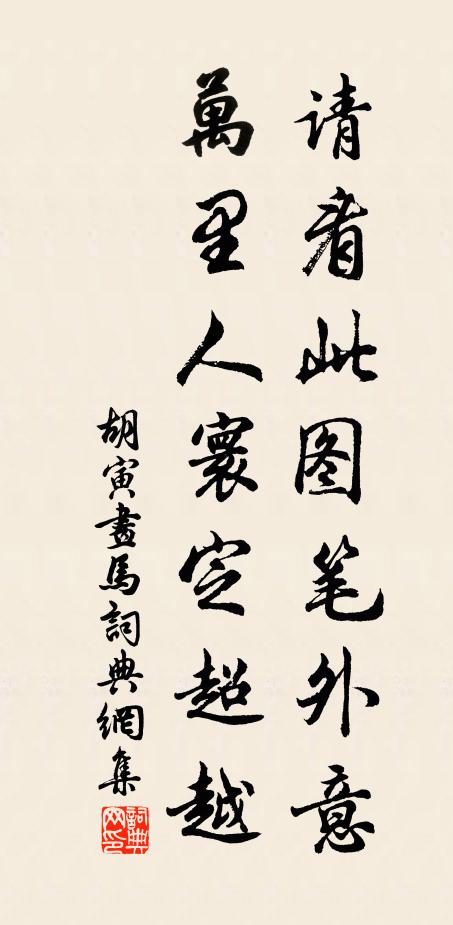 请看此图笔外意
萬里人寰定超越
胡寅畫馬詞典網集
詞典网印